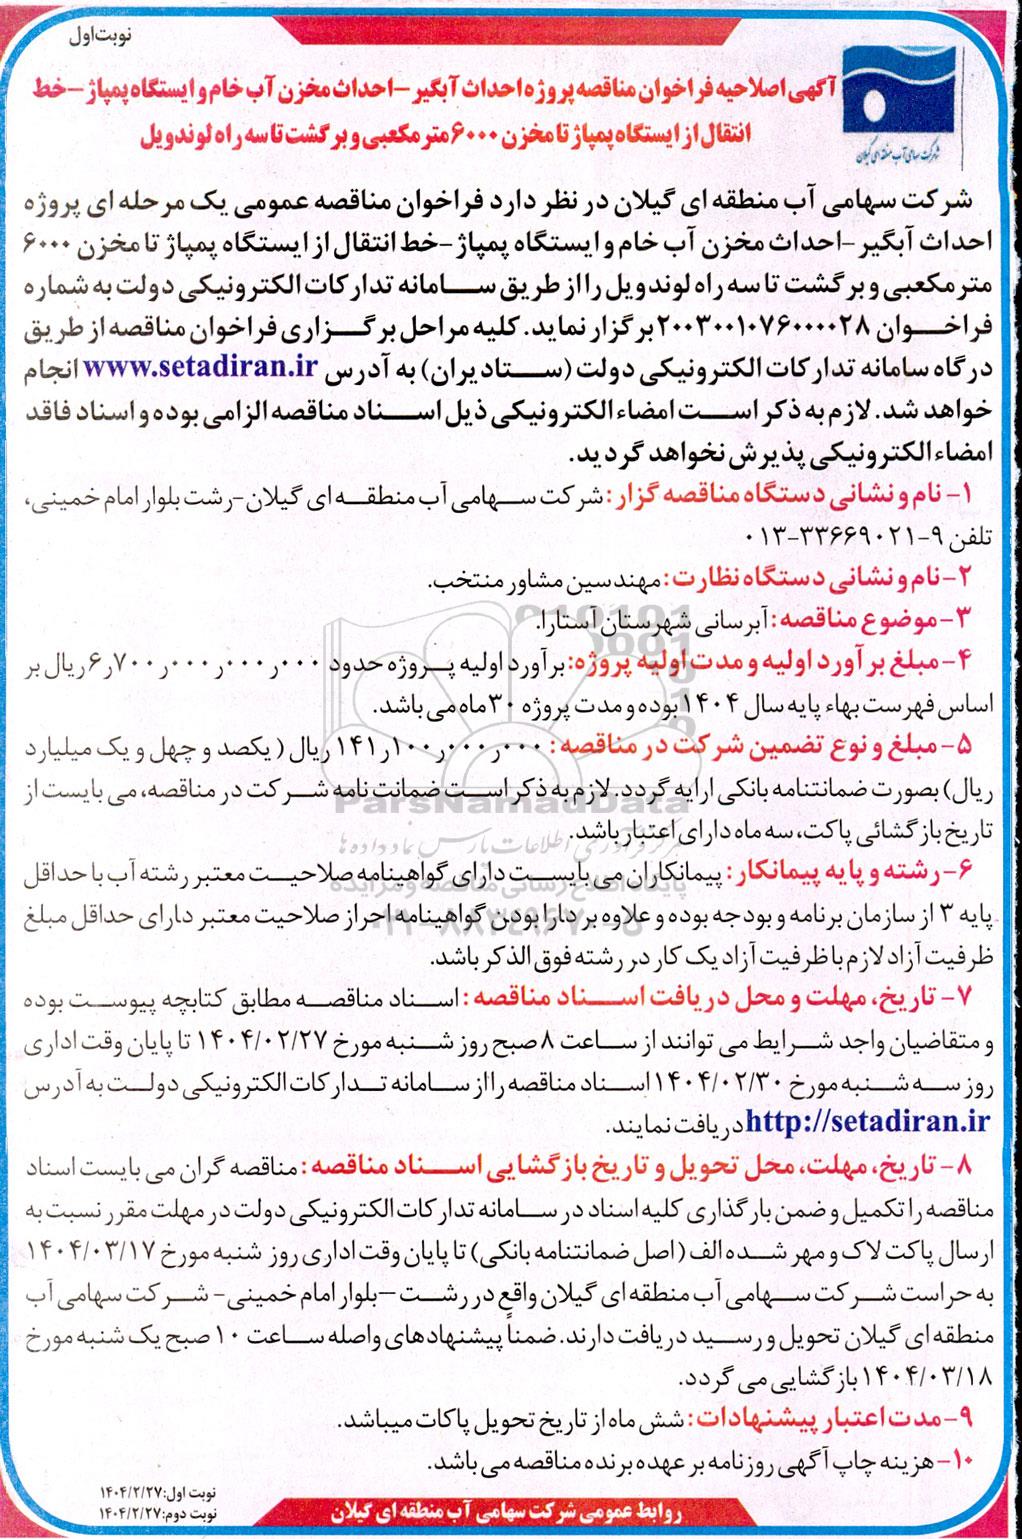 نوبت اول
آگهی اصلاحیه فراخوان مناقصه پروژه احداث آبگیر –احداث مخزن آب خام و ایستگاه پمپاژ –خط
انتقال از ایستگاه پمپاژ تا مخزن ۶۰۰۰ متر مکعبی و برگشت تا سه راه لوندویل
شرکت سهامی آب منطقه ای گیلان
شرکت سهامی آب منطقه ای گیلان در نظر دارد فراخوان مناقصه عمومی یک مرحله ای پروژه
احداث آبگیر –احداث مخزن آب خام و ایستگاه پمپاژ –خط انتقال از ایستگاه پمپاژ تا مخزن ۶۰۰۰
متر مکعبی و برگشت تا سه راه لوندویل را از طریق سامانه تدارکات الکترونیکی دولت به شماره
فراخوان ۲۰۰۳۰۰۱۰۷۶۰۰۰۰۲۸ برگزار نماید. کلیه مراحل برگزاری فراخوان مناقصه از طریق
درگاه سامانه تدارکات الکترونیکی دولت (ستاد یران) به آدرس www.setadiran.ir انجام
خواهد شد. لازم به ذکر است امضاء الکترونیکی ذیل اسناد مناقصه الزامی بوده و اسناد فاقد
امضاء الکترونیکی پذیرش نخواهد گردید.
۱- نام و نشانی دستگاه مناقصه گزار: شرکت سهامی آب منطقه ای گیلان-رشت بلوار امام خمینی،
تلفن ۹-۰۱۳-۳۳۶۶۹۰۲۱
۲-نام و نشانی دستگاه نظارت: مهندسین مشاور منتخب.
۳-موضوع مناقصه: آبرسانی شهرستان آستارا.
۴- مبلغ برآورد اولیه و مدت اولیه پروژه: برآورد اولیه پروژه حدود ۶٫۷۰۰٫۰۰۰٫۰۰۰٫۰۰۰ ریال بر
اساس فهرست بهاء پایه سال ۱۴۰۴ بوده و مدت پروژه ۳۰ ماه می باشد.
۵- مبلغ و نوع تضمین شرکت در مناقصه: ۱۴۱٫۱۰۰٫۰۰۰٫۰۰۰ ریال ( یکصد و چهل و یک میلیارد
ریال) بصورت ضمانتنامه بانکی ارایه گردد. لازم به ذکر است ضمانت نامه شرکت در مناقصه، می بایست از
تاریخ بازگشائی پاکت، سه ماه دارای اعتبار باشد.
۶- رشته و پایه پیمانکار: پیمانکاران می بایست دارای گواهینامه صلاحیت معتبر رشته آب با حداقل
پایه ۳ از سازمان برنامه و بودجه بوده و علاوه بر دارا بودن گواهینامه احراز صلاحیت معتبر دارای حداقل مبلغ
ظرفیت آزاد لازم با ظرفیت آزاد یک کار در رشته فوق الذکر باشد.
۷- تاریخ، مهلت و محل دریافت اسناد مناقصه: اسناد مناقصه مطابق کتابچه پیوست بوده
و متقاضیان واجد شرایط می توانند از ساعت ۸ صبح روز شنبه مورخ ۱۴۰۴/۰۲/۲۷ تا پایان وقت اداری
روز سه شنبه مورخ ۱۴۰۴/۰۲/۳۰ اسناد مناقصه را از سامانه تدارکات الکترونیکی دولت به آدرس
http://setadiran.ir دریافت نمایند.
۸- تاریخ، مهلت، محل تحویل و تاریخ بازگشایی اسناد مناقصه: مناقصه گران می بایست اسناد
مناقصه را تکمیل و ضمن بارگذاری کلیه اسناد در سامانه تدارکات الکترونیکی دولت در مهلت مقرر نسبت به
ارسال پاکت لاک و مهر شده الف (اصل ضمانتنامه بانکی) تا پایان وقت اداری روز شنبه مورخ ۱۴۰۴/۰۳/۱۷
به حراست شرکت سهامی آب منطقه ای گیلان واقع در رشت –بلوار امام خمینی- شرکت سهامی آب
منطقه ای گیلان تحویل و رسید دریافت دارند. ضمناً پیشنهادهای واصله ساعت ۱۰ صبح یک شنبه مورخ
۱۴۰۴/۰۳/۱۸ بازگشایی می گردد.
۹-مدت اعتبار پیشنهادات: شش ماه از تاریخ تحویل پاکات میباشد.
۱۰-هزینه چاپ آگهی روزنامه بر عهده برنده مناقصه می باشد.
نوبت اول:۱۴۰۴/۲/۲۷
نوبت دوم:۱۴۰۴/۲/۲۷
روابط عمومی شرکت سهامی آب منطقه ای گیلان
ParsNamadData
مرکز فرآوری اطلاعات پارس نماد داده ها
پایگاه اطلاع رسانی مناقصه و مزایده
۰۲۱-۸۸۳۴۹۶۷۰-۵